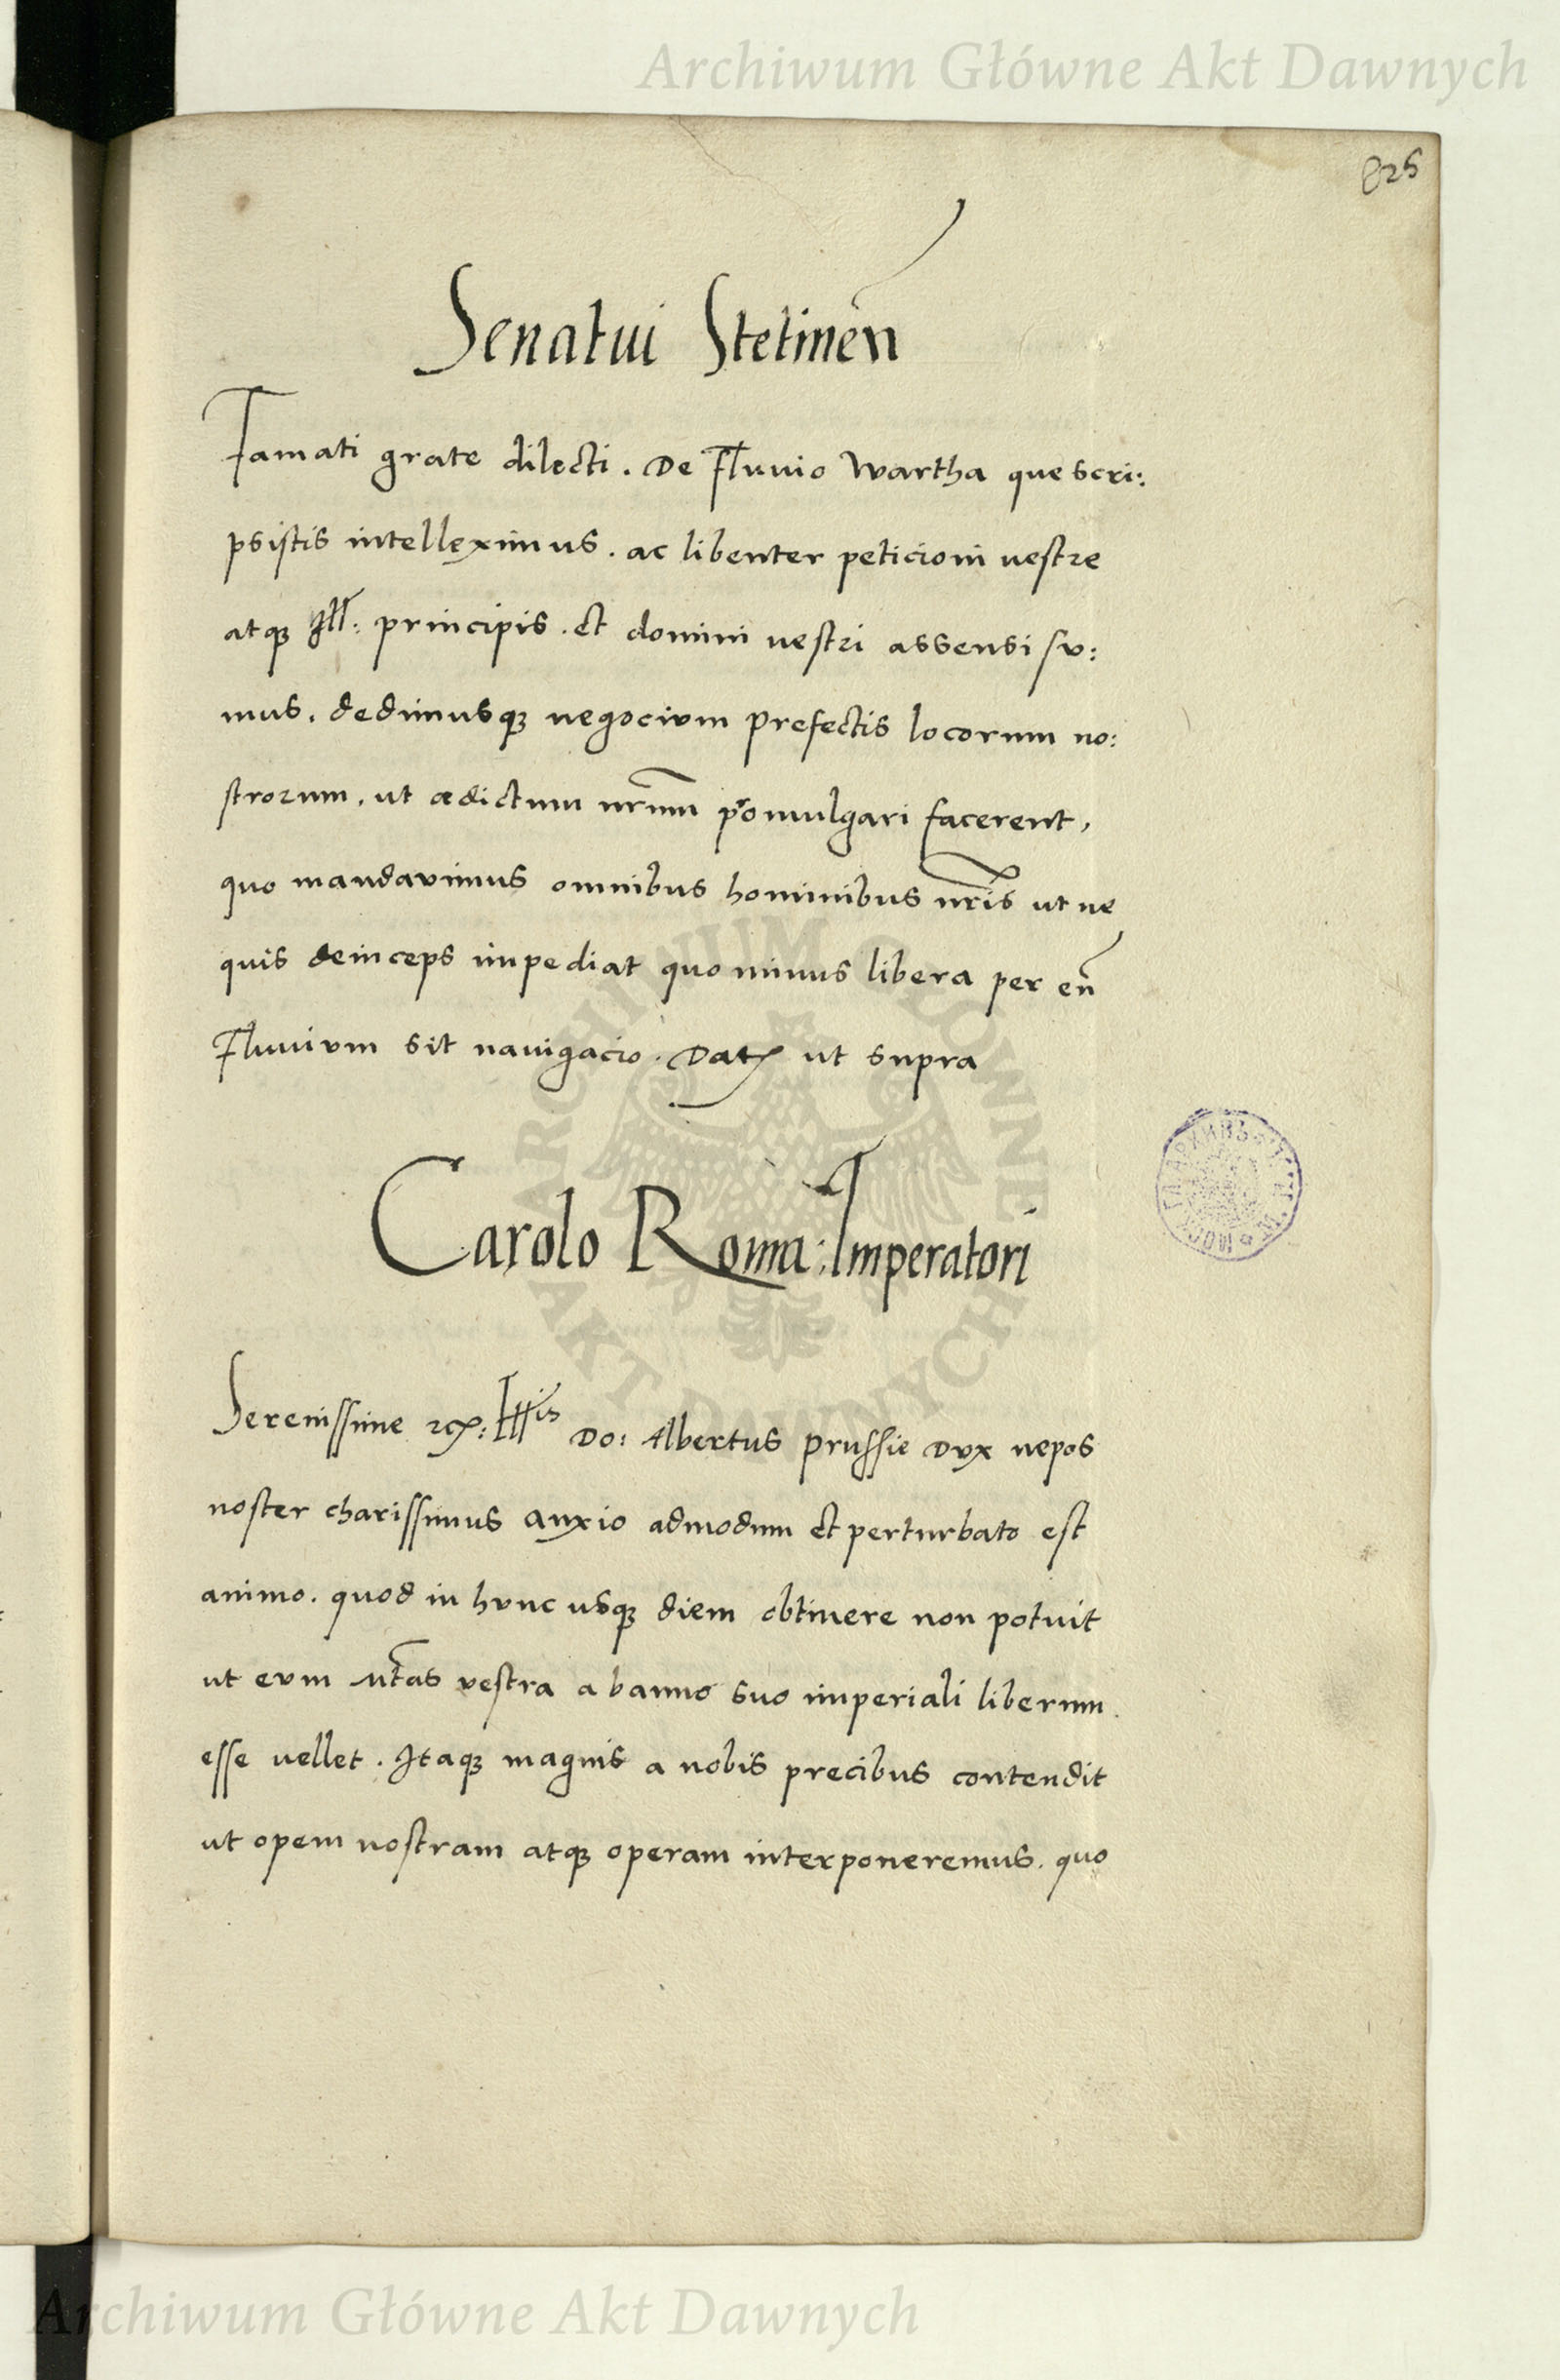 Archiwum Główne Akt Dawnych
825
Senatui Stetinen̄
Famati grate dilecti. De Fluuio Wartha que scri:
psistis intelleximus. ac libenter peticioni uestre
atqꝫ Ill: principis. et domini uestri assensi su:
mus. dedimusqꝫ negocium prefectis locorum no:
strorum, ut ædictum nr̄mm promulgari facerent,
quo mandauimus omnibus hominibus nr̄is ut ne
quis deinceps impediat quo minus libera per eū
Fluuium sit nauigacio. Datꝭ ut supra
Carolo Roma: Imperatori
Serenissime rex: Illis Do: Albertus Prussie Dux nepos
noster charissimus anxio admodum et perturbato est
animo. quod in hunc usqꝫ diem obtinere non potuit
ut eum Mt̄as vestra a banno suo imperiali liberum
esse uellet. Itaqꝫ magnis a nobis precibus contendit
ut opem nostram atqꝫ operam interponeremus. quo
ARCHIWUM GŁÓWNE
AKT DAWNYCH
Archiwum Główne Akt Dawnych